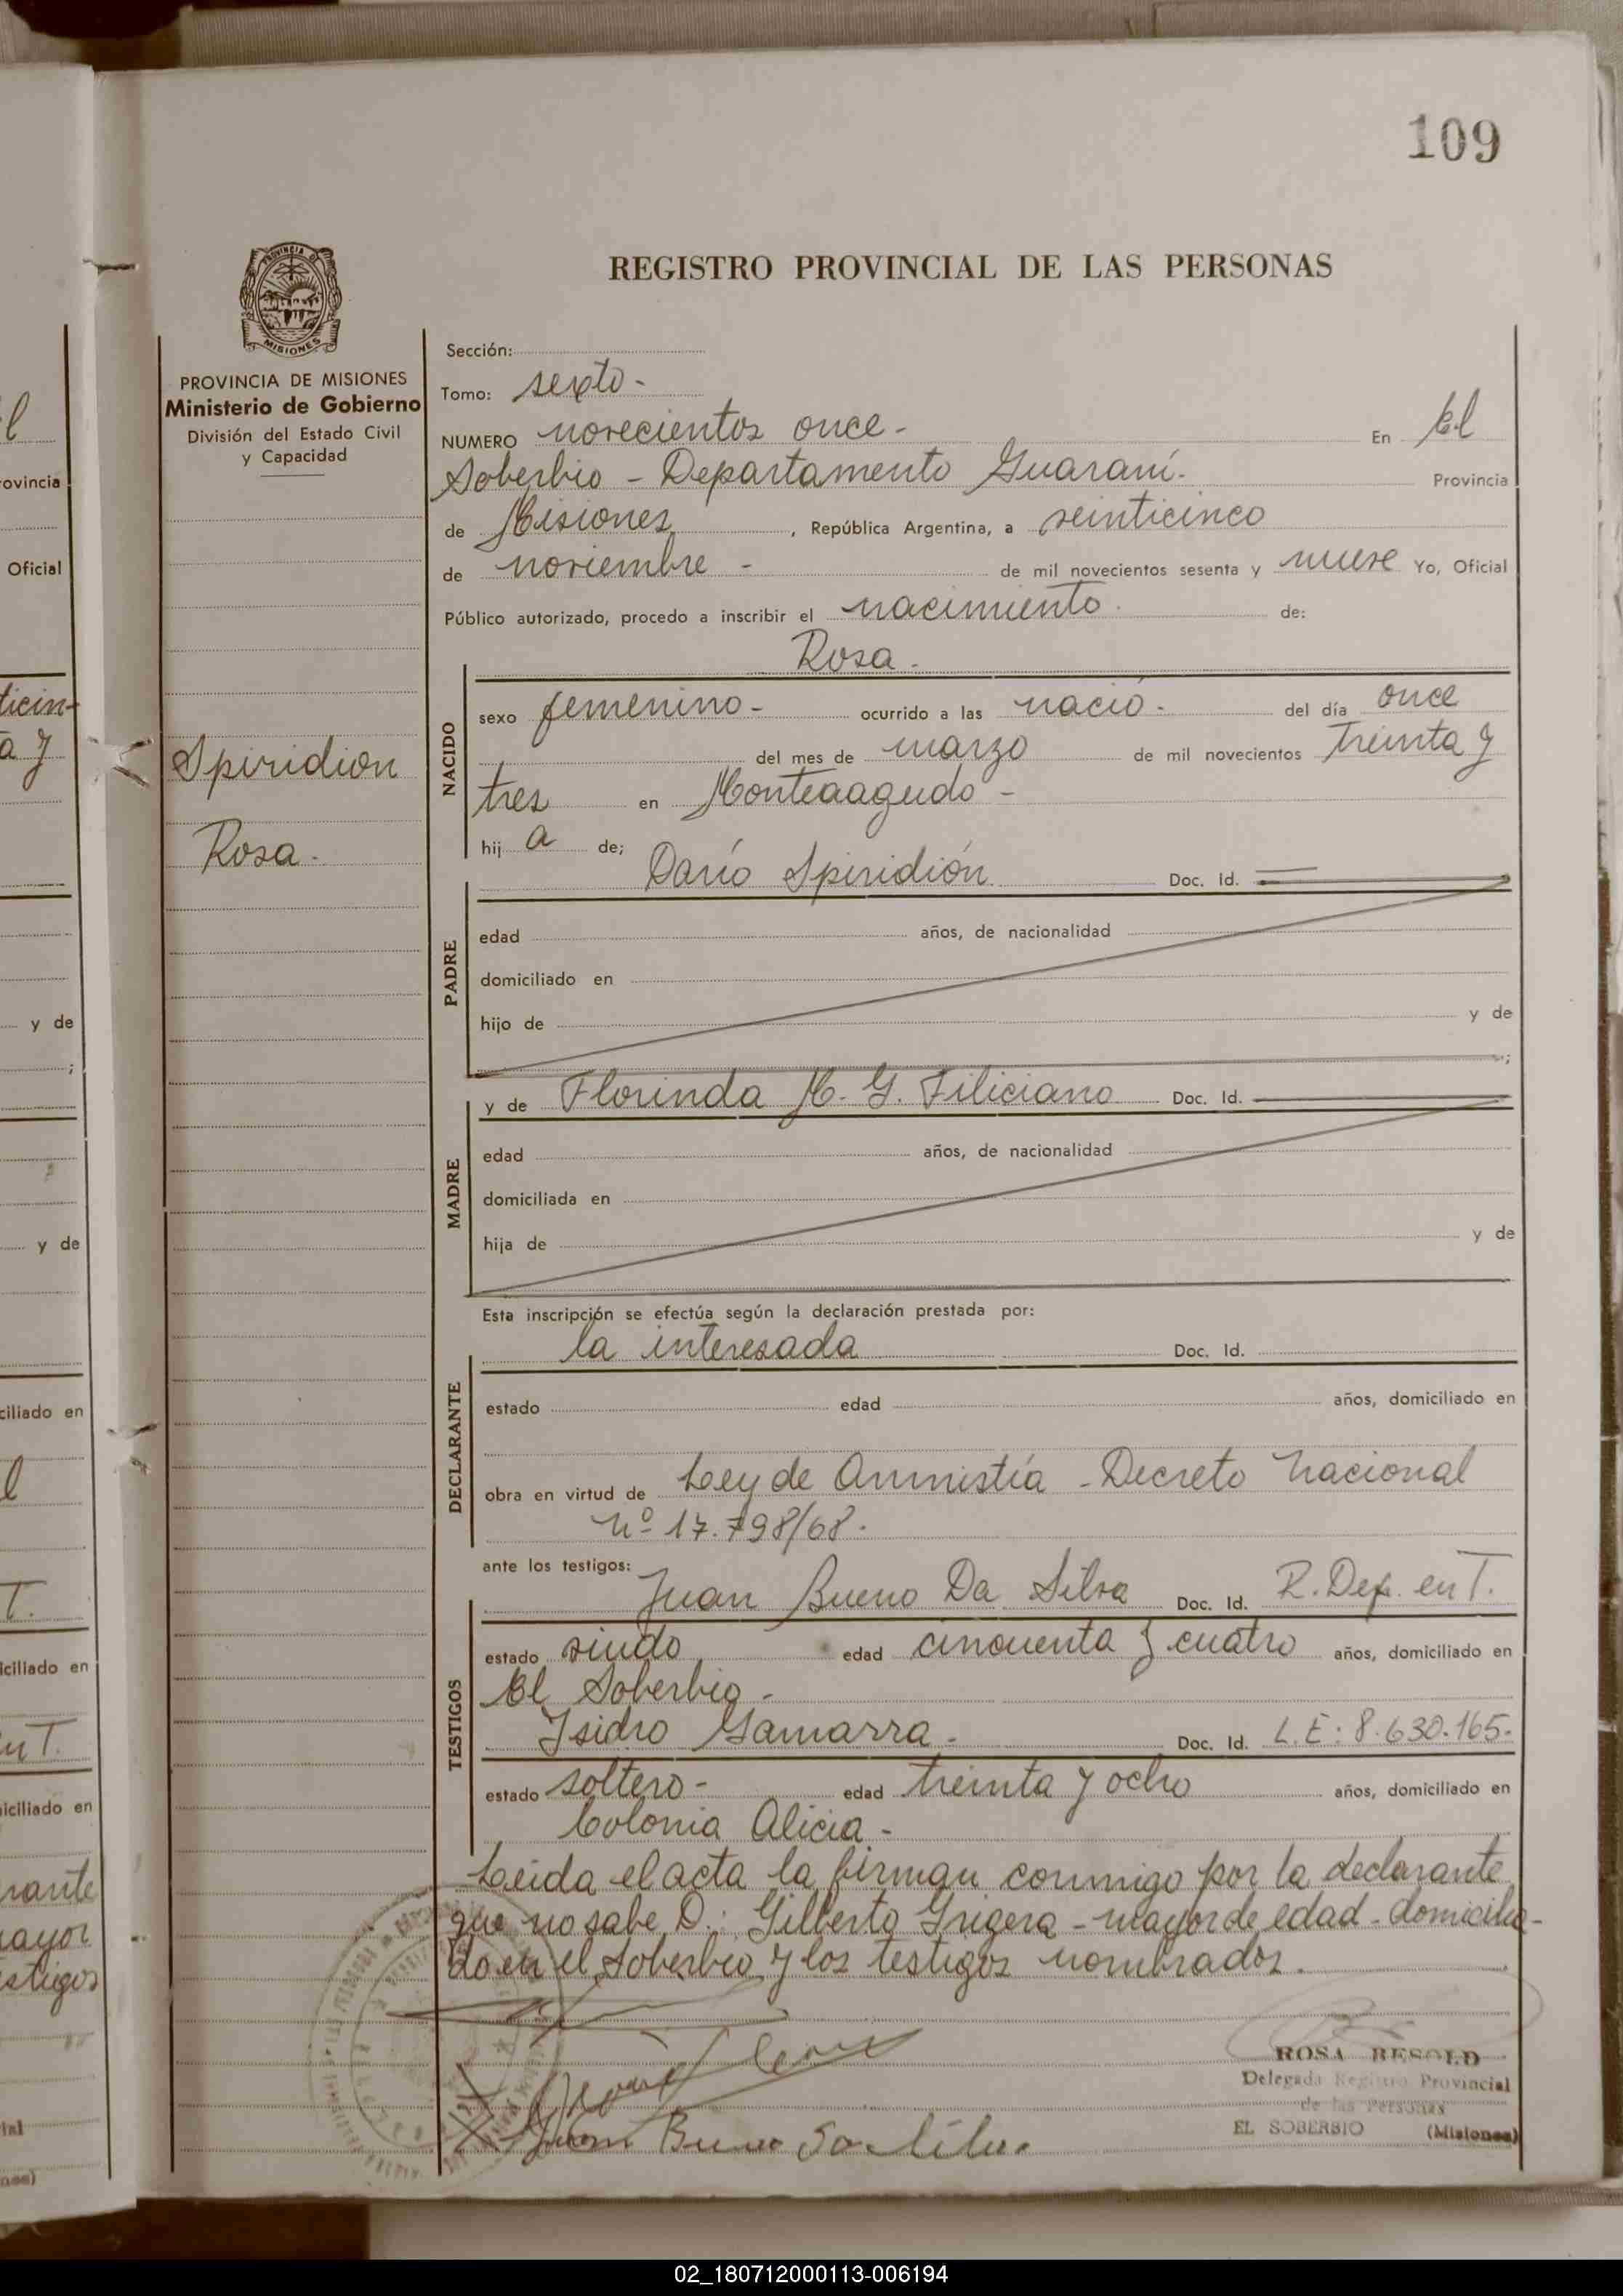 109
REGISTRO PROVINCIAL DE LAS PERSONAS
PROVINCIA DE MISIONES
Ministerio de Gobierno
División del Estado Civil
y Capacidad
Spiridion
Rosa.
Sección:
Tomo: sexto-
NUMERO novecientos once- En El
Soberbio - Departamento Guaraní. Provincia
de Misiones, República Argentina, a veinticinco
de noviembre - de mil novecientos sesenta y nueve Yo, Oficial
Público autorizado, procedo a inscribir el nacimiento. de:
Rosa.
NACIDO
sexo femenino- ocurrido a las nació- del día once
del mes de marzo de mil novecientos treinta y
tres en Monteaagudo-
hij a de;
PADRE
Darío Spiridión Doc. Id.
edad años, de nacionalidad
domiciliado en
hijo de y de
;
MADRE
y de Florinda M. G. Filiciano Doc. Id.
edad años, de nacionalidad
domiciliada en
hija de y de
Esta inscripción se efectúa según la declaración prestada por:
DECLARANTE
la interesada Doc. Id.
estado edad años, domiciliado en
obra en virtud de Ley de Amnistía - Decreto Nacional
Nº 17.798/68.
ante los testigos:
TESTIGOS
Juan Bueno Da Silva Doc. Id. R. Dep. en T.
estado viudo edad cincuenta y cuatro años, domiciliado en
El Soberbio-
Isidro Gamarra- Doc. Id. L.E: 8.630.165-
estado soltero- edad treinta y ocho años, domiciliado en
Colonia Alicia-
Leída el acta la firman conmigo por la declarante
que no sabe D.: Gilberto Grigera - mayor de edad - domicilia-
do en el Soberbio y los testigos nombrados.
ROSA BESOLD
Delegada Registro Provincial
de las Personas
EL SOBERBIO (Misiones)
02_180712000113-006194